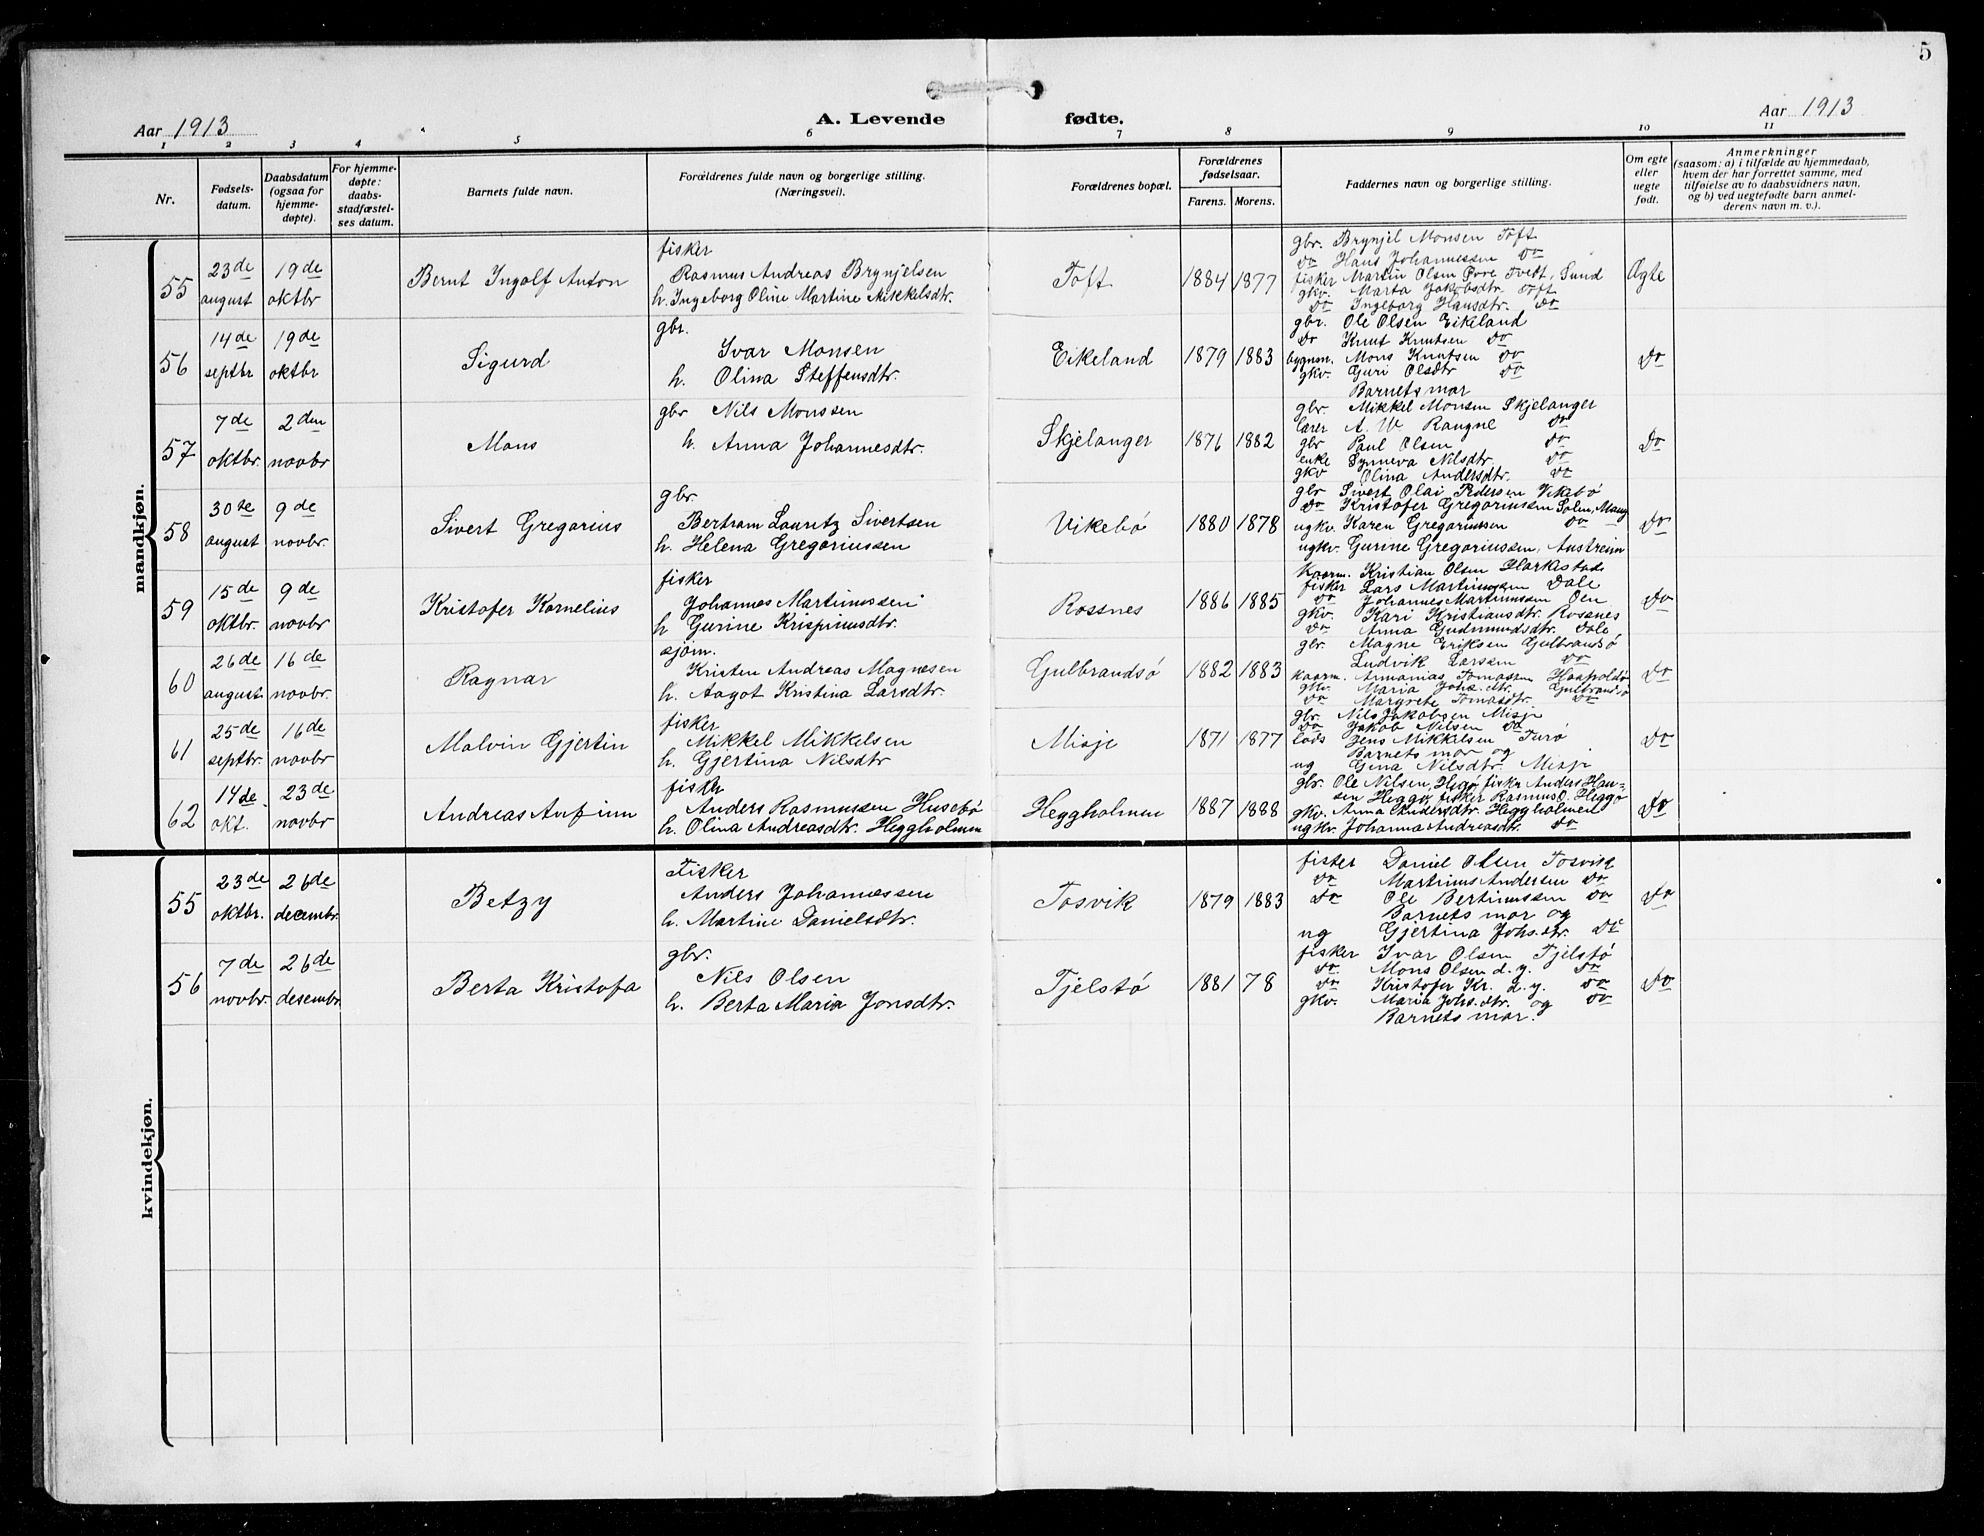 5
Aar 1913
A. Levende
fødte.
Aar 1913
1 2 3 4 5 6 7 8 9 10 11
Nr.
Fødsels-
datum.
Daabsdatum
(ogsaa for
hjemme-
døpte).
For hjemme-
døpte:
daabs-
stadfæstel-
ses datum.
Barnets fulde navn.
Forældrenes fulde navn og borgerlige stilling.
(Næringsvei).
Forældrenes bopæl.
Forældrenes
fødselsaar.
Farens. Morens.
Faddernes navn og borgerlige stilling.
Om egte
eller
uegte
født.
Anmerkninger
(saasom: a) i tilfælde av hjemmedaab,
hvem der har forrettet samme, med
tilføielse av to daabsvidners navn,
og b) ved uegtefødte barn anmel-
derens navn m. v.).
mandkjøn.
55
23de
august
19de
oktbr
Bernt Ingolf Anton
fisker
Rasmus Andreas Brynjelsen
h. Ingeborg Oline Martine Mikkelsdtr.
Toft
1884 1877
gbr. Brynjel Monsen Toft
do Hans Johannessen do
fisker Martin Olsen Tvedt, Sund
gkv. Marta Jakobsdtr. Toft
do Ingeborg Hansdtr. do
Ægte
56
14de
septbr
19de
oktbr
Sigurd
gbr.
Ivar Monsen
h. Olina Steffensdtr.
Eikeland
1879 1883
gbr. Ole Olsen Eikeland
do Knut Knutsen do
bygnsm. Mons Knutsen do
gkv. Guri Olsdtr do
Barnets mor
do
57
7de
oktbr.
2den
novbr
Mons
gbr Nils Monssen
h. Anna Johannesdtr.
Skjelanger
1876 1882
gbr. Mikkel Monsen Skjelanger
lærer A. W. Rangne do
gbr Paul Olsen do
enke Synneva Nilsdtr. do
gkv Olina Andersdtr. do
do
58
30te
august
9de
novbr.
Sivert Gregorius
gbr.
Bertram Lauritz Sivertsen
h. Helena Gregoriussen
Vikebø
1880 1878
gbr Sivert Olai Pedersen Vikebø
do Kristofer Gregoriussen Solem, Mang
ugkv. Karen Gregoriussen do
ugkv. Gurine Gregoriussen, Austreim
do
59
15de
oktbr.
9de
novbr
Kristofer Kornelius
fisker
Johannes Martinussen
h Gurine Krispinusdtr.
Rossnes
1886 1885
kaarm. Kristian Olsen
fisker Lars Martinussen Dale
do Johannes Martinussen Oen
gkv. Kari Kristiansdtr. Rossnes
do Anna Gudmundsdtr. Dale
do
60
26de
august
16de
novbr.
Ragnar
sjøm.
Kristen Andreas Magnesen
h. Aagot Kristina Larsdtr.
Gulbrandsø
1882 1883
gbr. Magne Eriksen Gulbrandsø
Ludvik Larssen do
kaarm. Annanias Tomassen
gkv. Maria Johs.dtr. Gulbrandsø
do. Margrete Tomasdtr. do
do
61
25de
septbr.
16de
novbr
Malvin Gjertin
fisker
Mikkel Mikkelsen
h. Gjertina Nilsdtr
Misje
1871 1877
gbr. Nils Jakobsen Misje
do Jakob Nilsen do
lods Jens Mikkelsen Turø
Barnets mor og
ug Gina Nilsdtr. Misje
do
62
14de
okt.
23de
novbr
Andreas Anfinn
fisker
Anders Rasmussen Husebø
h. Olina Andreasdtr. Heggholmen
Heggholmen
1887 1888
gbr. Ole Nilsen, Heggø, fiskr. Anders Han-
sen Heggø, fisker Rasmus O. Heggø
gkv. Anna Andersdtr. Heggholmen
ugkv. Johanna Andreasdtr. do
do
kvindekjøn.
55
23de
oktbr.
26de
decembr.
Betzy
Fisker
Anders Johannessen
h. Martine Danielsdtr.
Tosvik
1879 1883
fisker Daniel Olsen Tosvik
do Martinus Andersen do
do Ole Bertinussen do
Barnets mor og
ug Gjertina Johs.dtr. do
do
56
7de
novbr.
26de
desembr.
Berta Kristofa
gbr.
Nils Olsen
h. Berta Maria Jonsdtr.
Tjelstø
1881 78
fisker Ivar Olsen Tjelstø
do. Mons Olsen d. y. do
do Kristofer Kr. d. y. do
gkv. Maria Johs.dtr. og do
Barnets mor.
do